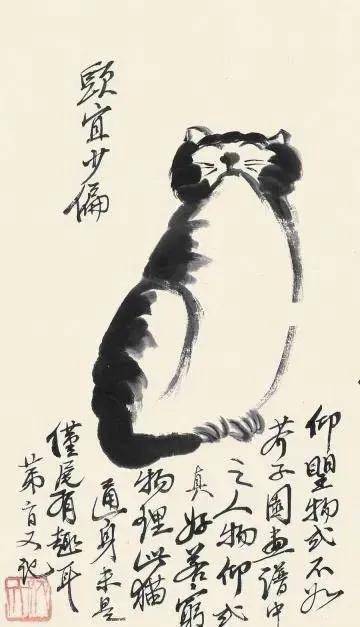 頭宜少偏
仰望物式不如
芥子園畫譜中
之人物仰式
真好善窮
物理此猫
通身未是
僅尾有趣耳
又記